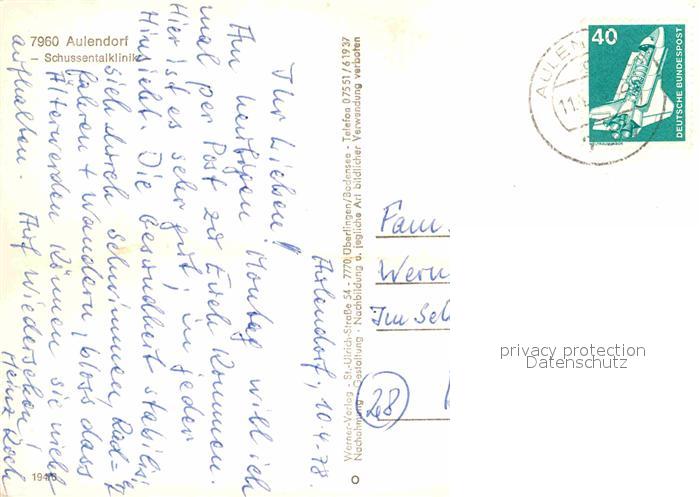 7960 Aulendorf
– Schussentalklinik –
Aulendorf, 10.4.78.
Ihr Lieben!
Am heutigen Montag will ich
mal per Post zu Euch kommen.
Hier ist es sehr gut, in jeder
Hinsicht. Die Gesundheit stabilisiert
sich durch schwimmen, Rad=
fahren + wandern, bloss dass
Älterwerden können sie nicht
aufhalten. Auf Wiedersehen!
Heinz Koch
194/6
Werner-Verlag - St.-Ulrich-Straße 54 - 7770 Überlingen/Bodensee - Telefon 07551/61937
Nachahmung - Gestaltung - Nachbildung u. jegliche Art bildlicher Verwertung verboten
O
40
DEUTSCHE BUNDESPOST
AULEN
11.
Fam.
Wern
Im Sch
28
privacy protection
Datenschutz